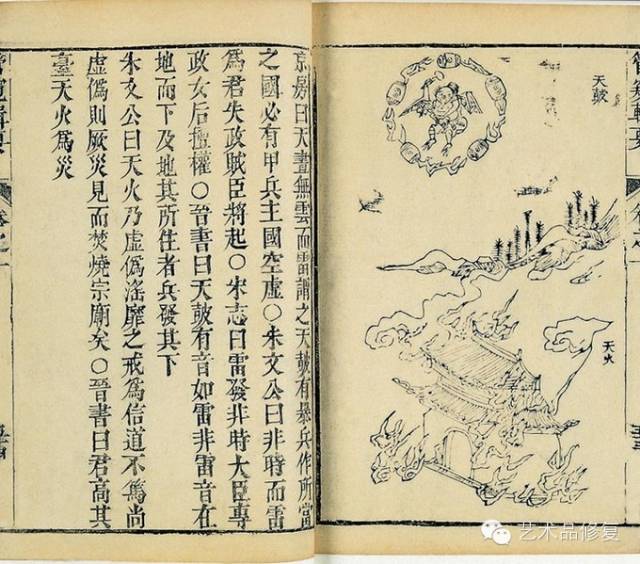 天皷
天火
京房曰天晝無雲而雷謂之天皷有暴兵作所當
之國必有甲兵主國空虛○朱文公曰非時而雷
爲君失政賊臣將起○宋志曰雷發非時大臣專
政女后擅權○晉書曰天皷有音如雷非雷音在
地而下及地其所住者兵發其下
朱文公曰天火乃虛僞淫靡之戒爲信道不篤尚
虛僞則厥災見而焚燒宗廟矣○晉書曰君高其
臺天火爲災
艺术品修复